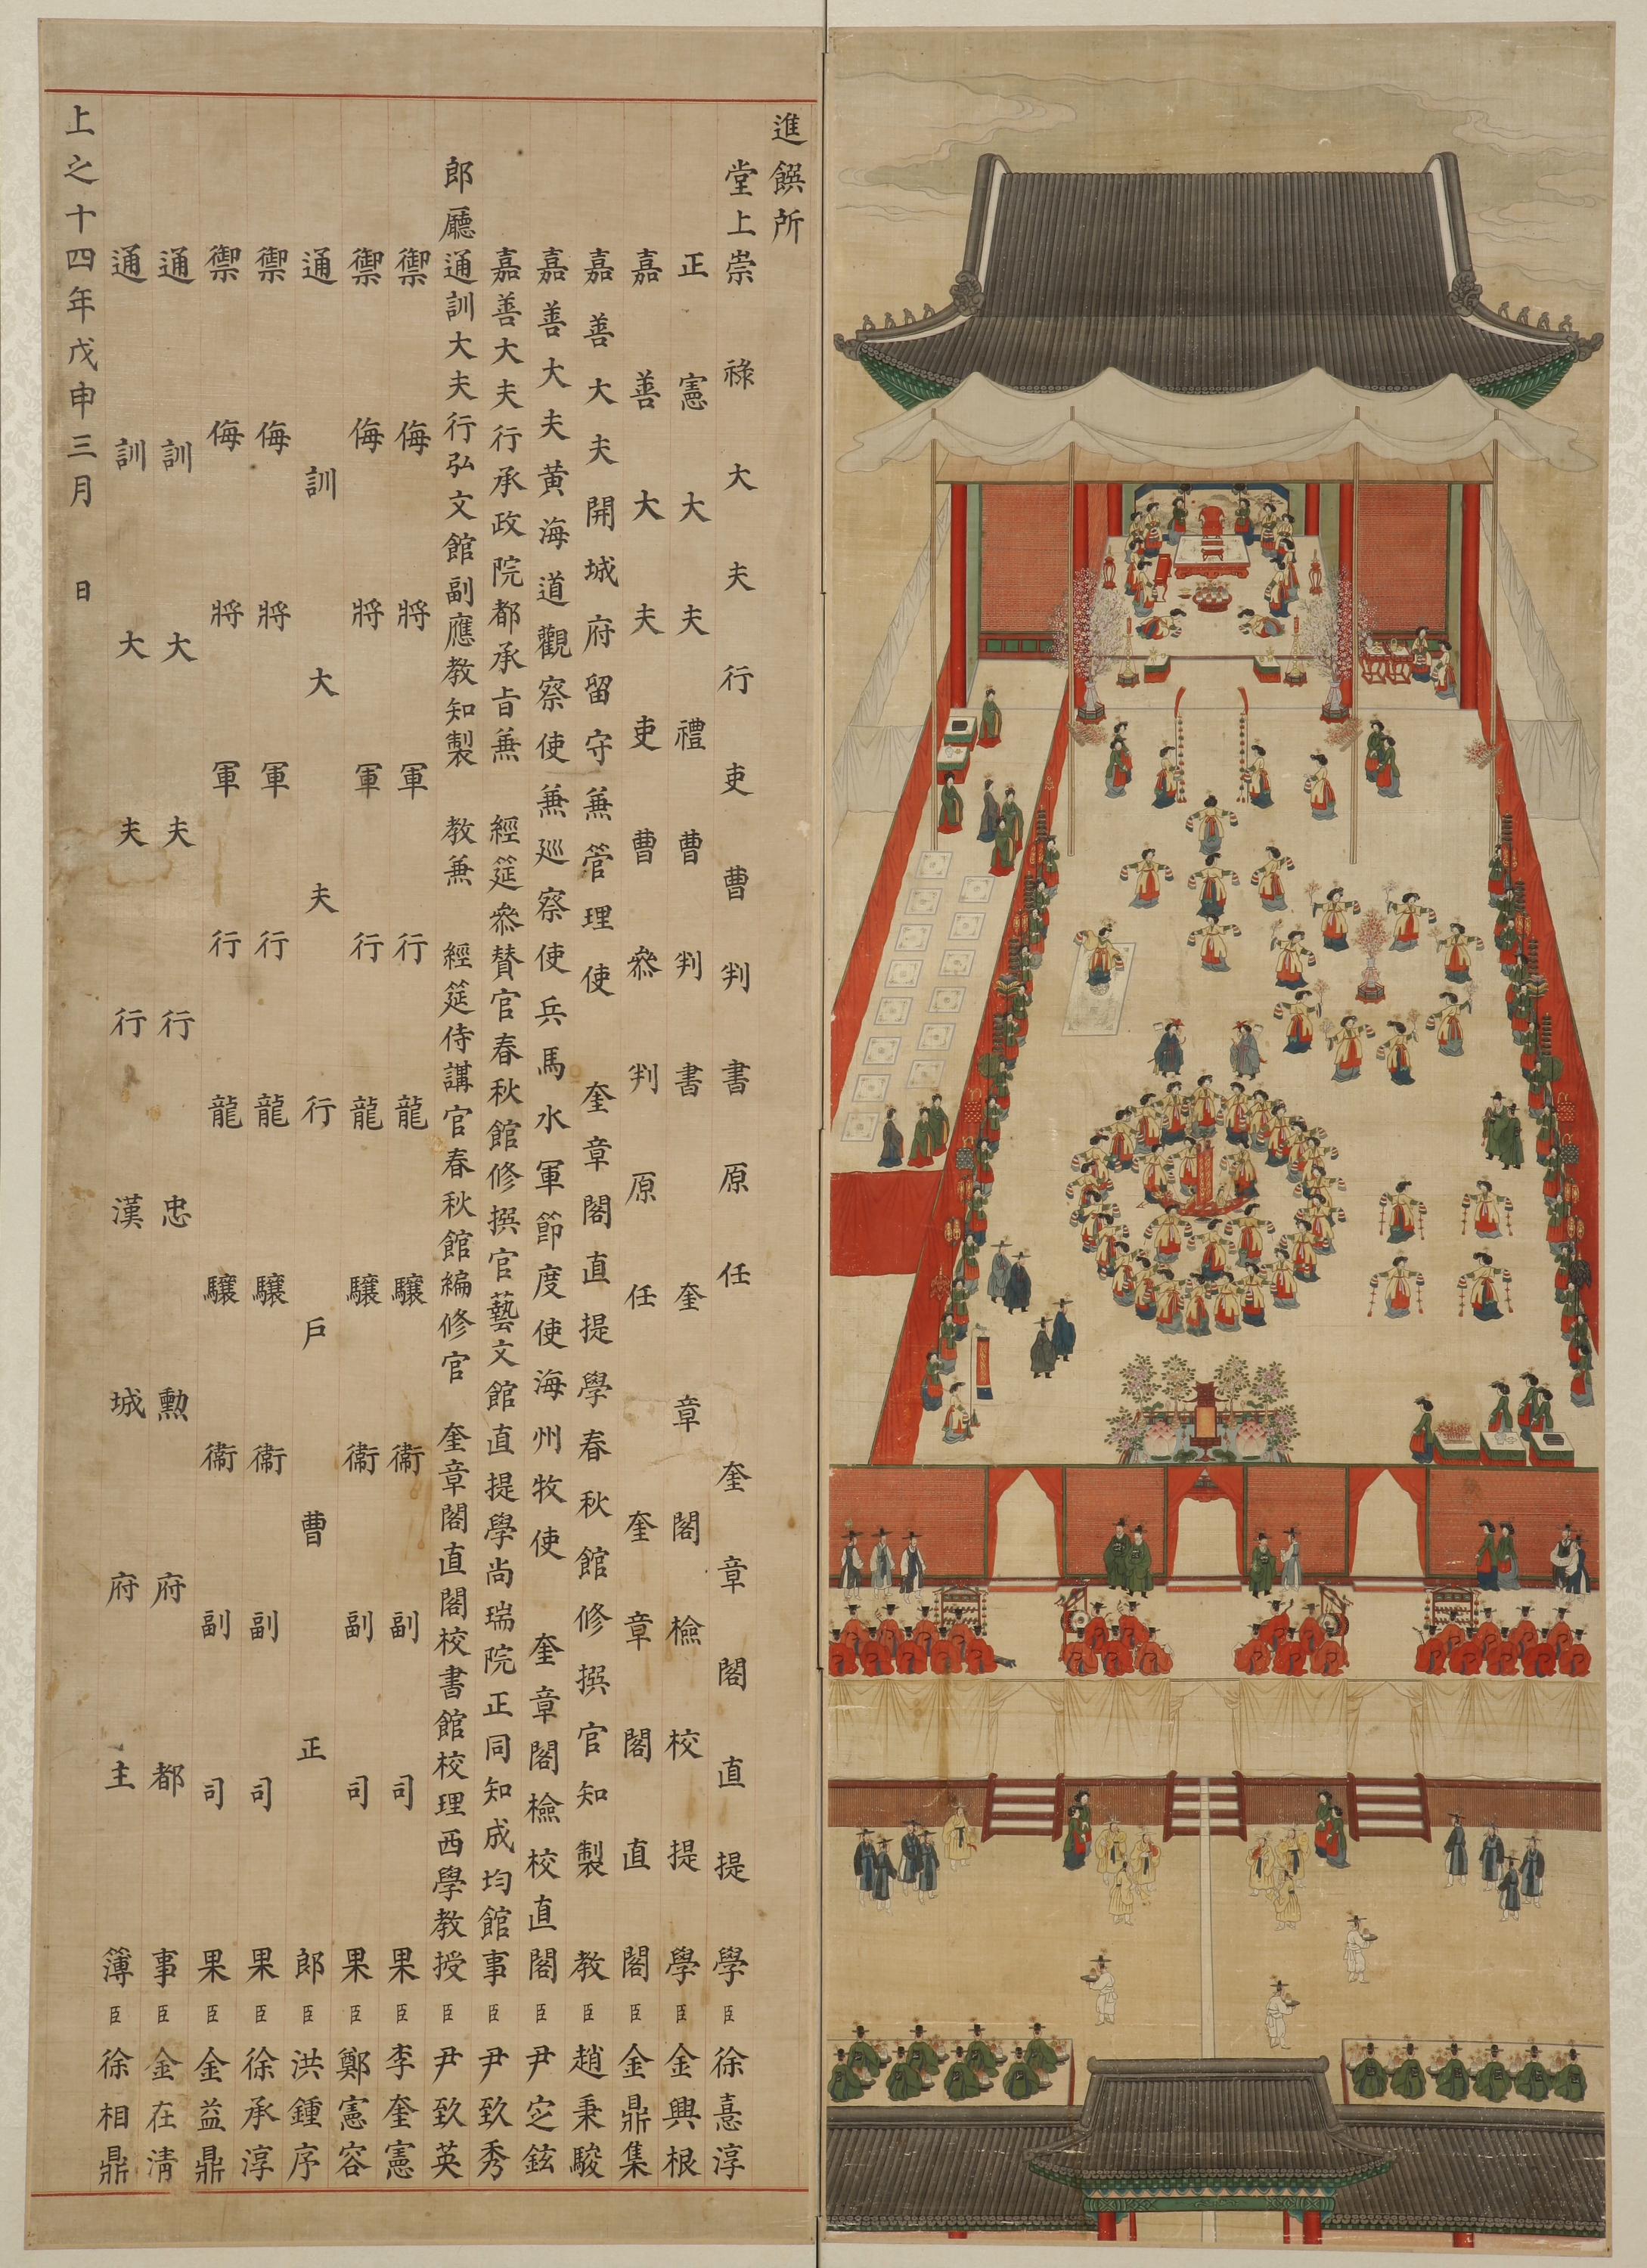 進饌所
堂上崇祿大夫行吏曹判書原任奎章閣直提學臣徐憙淳
正憲大夫禮曹判書奎章閣檢校提學臣金興根
嘉善大夫吏曹參判原任奎章閣直閣臣金鼎集
嘉善大夫開城府留守兼管理使奎章閣直提學春秋館修撰官知製教臣趙秉駿
嘉善大夫黃海道觀察使兼巡察使兵馬水軍節度使海州牧使奎章閣檢校直閣臣尹定鉉
嘉善大夫行承政院都承旨兼經筵參贊官春秋館修撰官藝文館直提學尚瑞院正同知成均館事臣尹致秀
郎廳通訓大夫行弘文館副應教知製教兼經筵侍講官春秋館編修官奎章閣直閣校書館校理西學教授臣尹致英
禦侮將軍行龍驤衛副司果臣李奎憲
禦侮將軍行龍驤衛副司果臣鄭憲容
通訓大夫行戶曹正郎臣洪鍾序
禦侮將軍行龍驤衛副司果臣徐承淳
禦侮將軍行龍驤衛副司果臣金益鼎
通訓大夫行忠勳府都事臣金在清
通訓大夫行漢城府主簿臣徐相鼎
上之十四年戊申三月 日